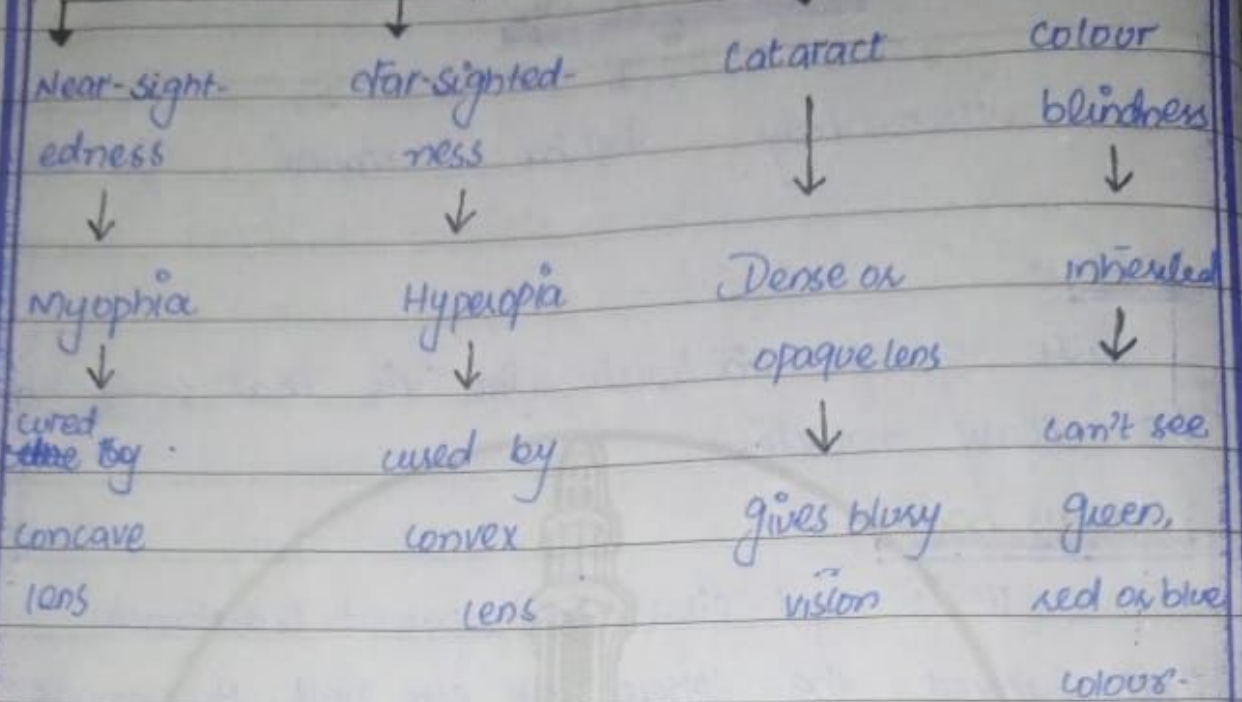 Near-sight-
edness
Myophia
cured
by
concave
lens
far-sighted-
ness
Hyperopia
cured by
convex
lens
Cataract
Dense or
opaque lens
gives blury
vision
colour
blindness
inherited
can't see
green,
red or blue
colour.